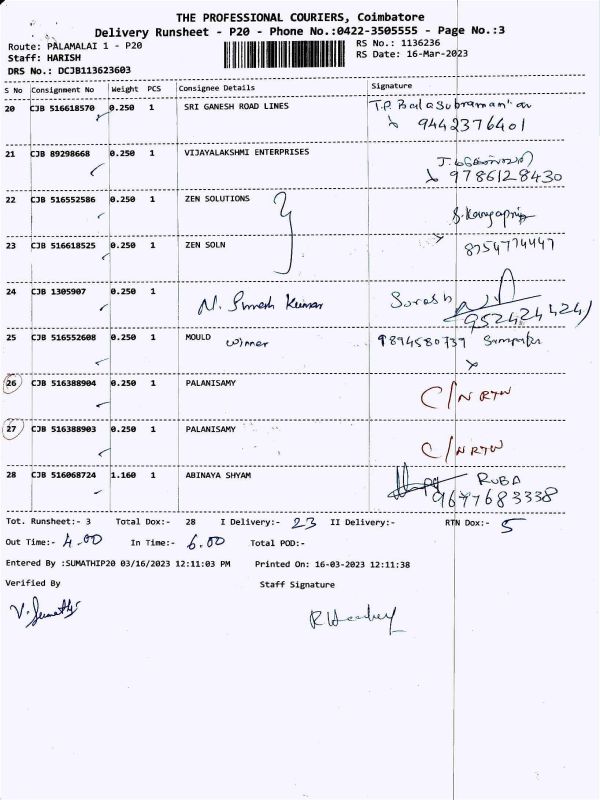 THE PROFESSIONAL COURIERS, Coimbatore
Delivery Runsheet - P20 - Phone No.:0422-3505555 - Page No.:3
Route: PALAMALAI 1 - P20
RS No.: 1136236
Staff: HARISH
RS Date: 16-Mar-2023
DRS No.: DCJB113623603
S No Consignment No Weight PCS Consignee Details Signature
20 CJB 516618570 0.250 1 SRI GANESH ROAD LINES T.P. Balasubramanian
9442376401
21 CJB 89298668 0.250 1 VIJAYALAKSHMI ENTERPRISES
9786128430
22 CJB 516552586 0.250 1 ZEN SOLUTIONS
23 CJB 516618525 0.250 1 ZEN SOLN 8754774447
24 CJB 1305907 0.250 1 N. Suresh Kumar Suresh
9524244241
25 CJB 516552608 0.250 1 MOULD winner 9894580737
26 CJB 516388904 0.250 1 PALANISAMY C/N RTN
27 CJB 516388903 0.250 1 PALANISAMY C/N RTN
28 CJB 516068724 1.160 1 ABINAYA SHYAM RUBA
9677683338
Tot. Runsheet:- 3 Total Dox:- 28 I Delivery:- 23 II Delivery:- RTN Dox:- 5
Out Time:- 4.00 In Time:- 6.00 Total POD:-
Entered By :SUMATHIP20 03/16/2023 12:11:03 PM Printed On: 16-03-2023 12:11:38
Verified By Staff Signature
V. Sumathi